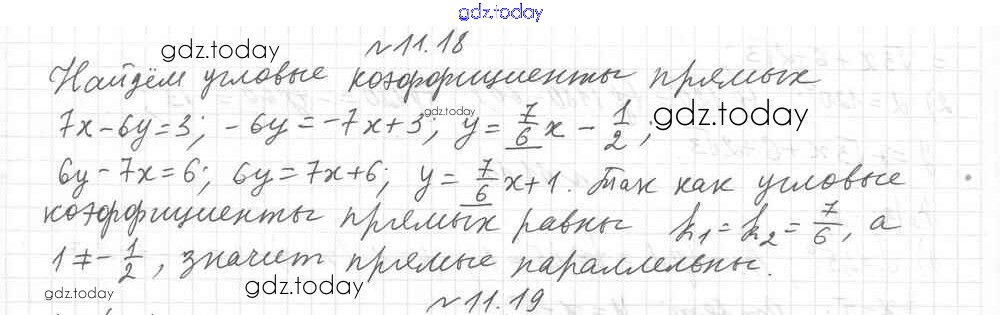 gdz.today
gdz.today №11.18
Найдём угловые коэффициенты прямых
gdz.today
7x-6y=3; -6y=-7x+3; y=7/6x-1/2; gdz.today
6y-7x=6; 6y=7x+6; y=7/6x+1. Так как угловые
коэффициенты прямых равны k₁=k₂=7/6, а
1≠-1/2, значит прямые параллельны.
gdz.today gdz.today
№11.19